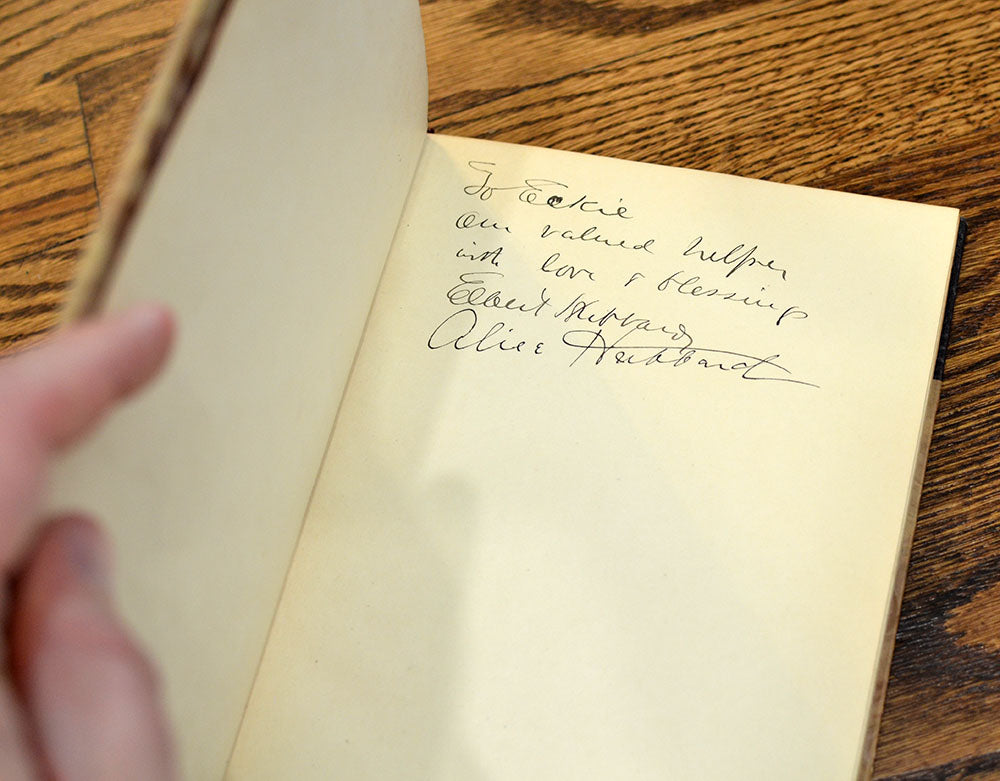 To Eckie
our valued helper
with love & blessing
Elbert Hubbard
Alice Hubbard